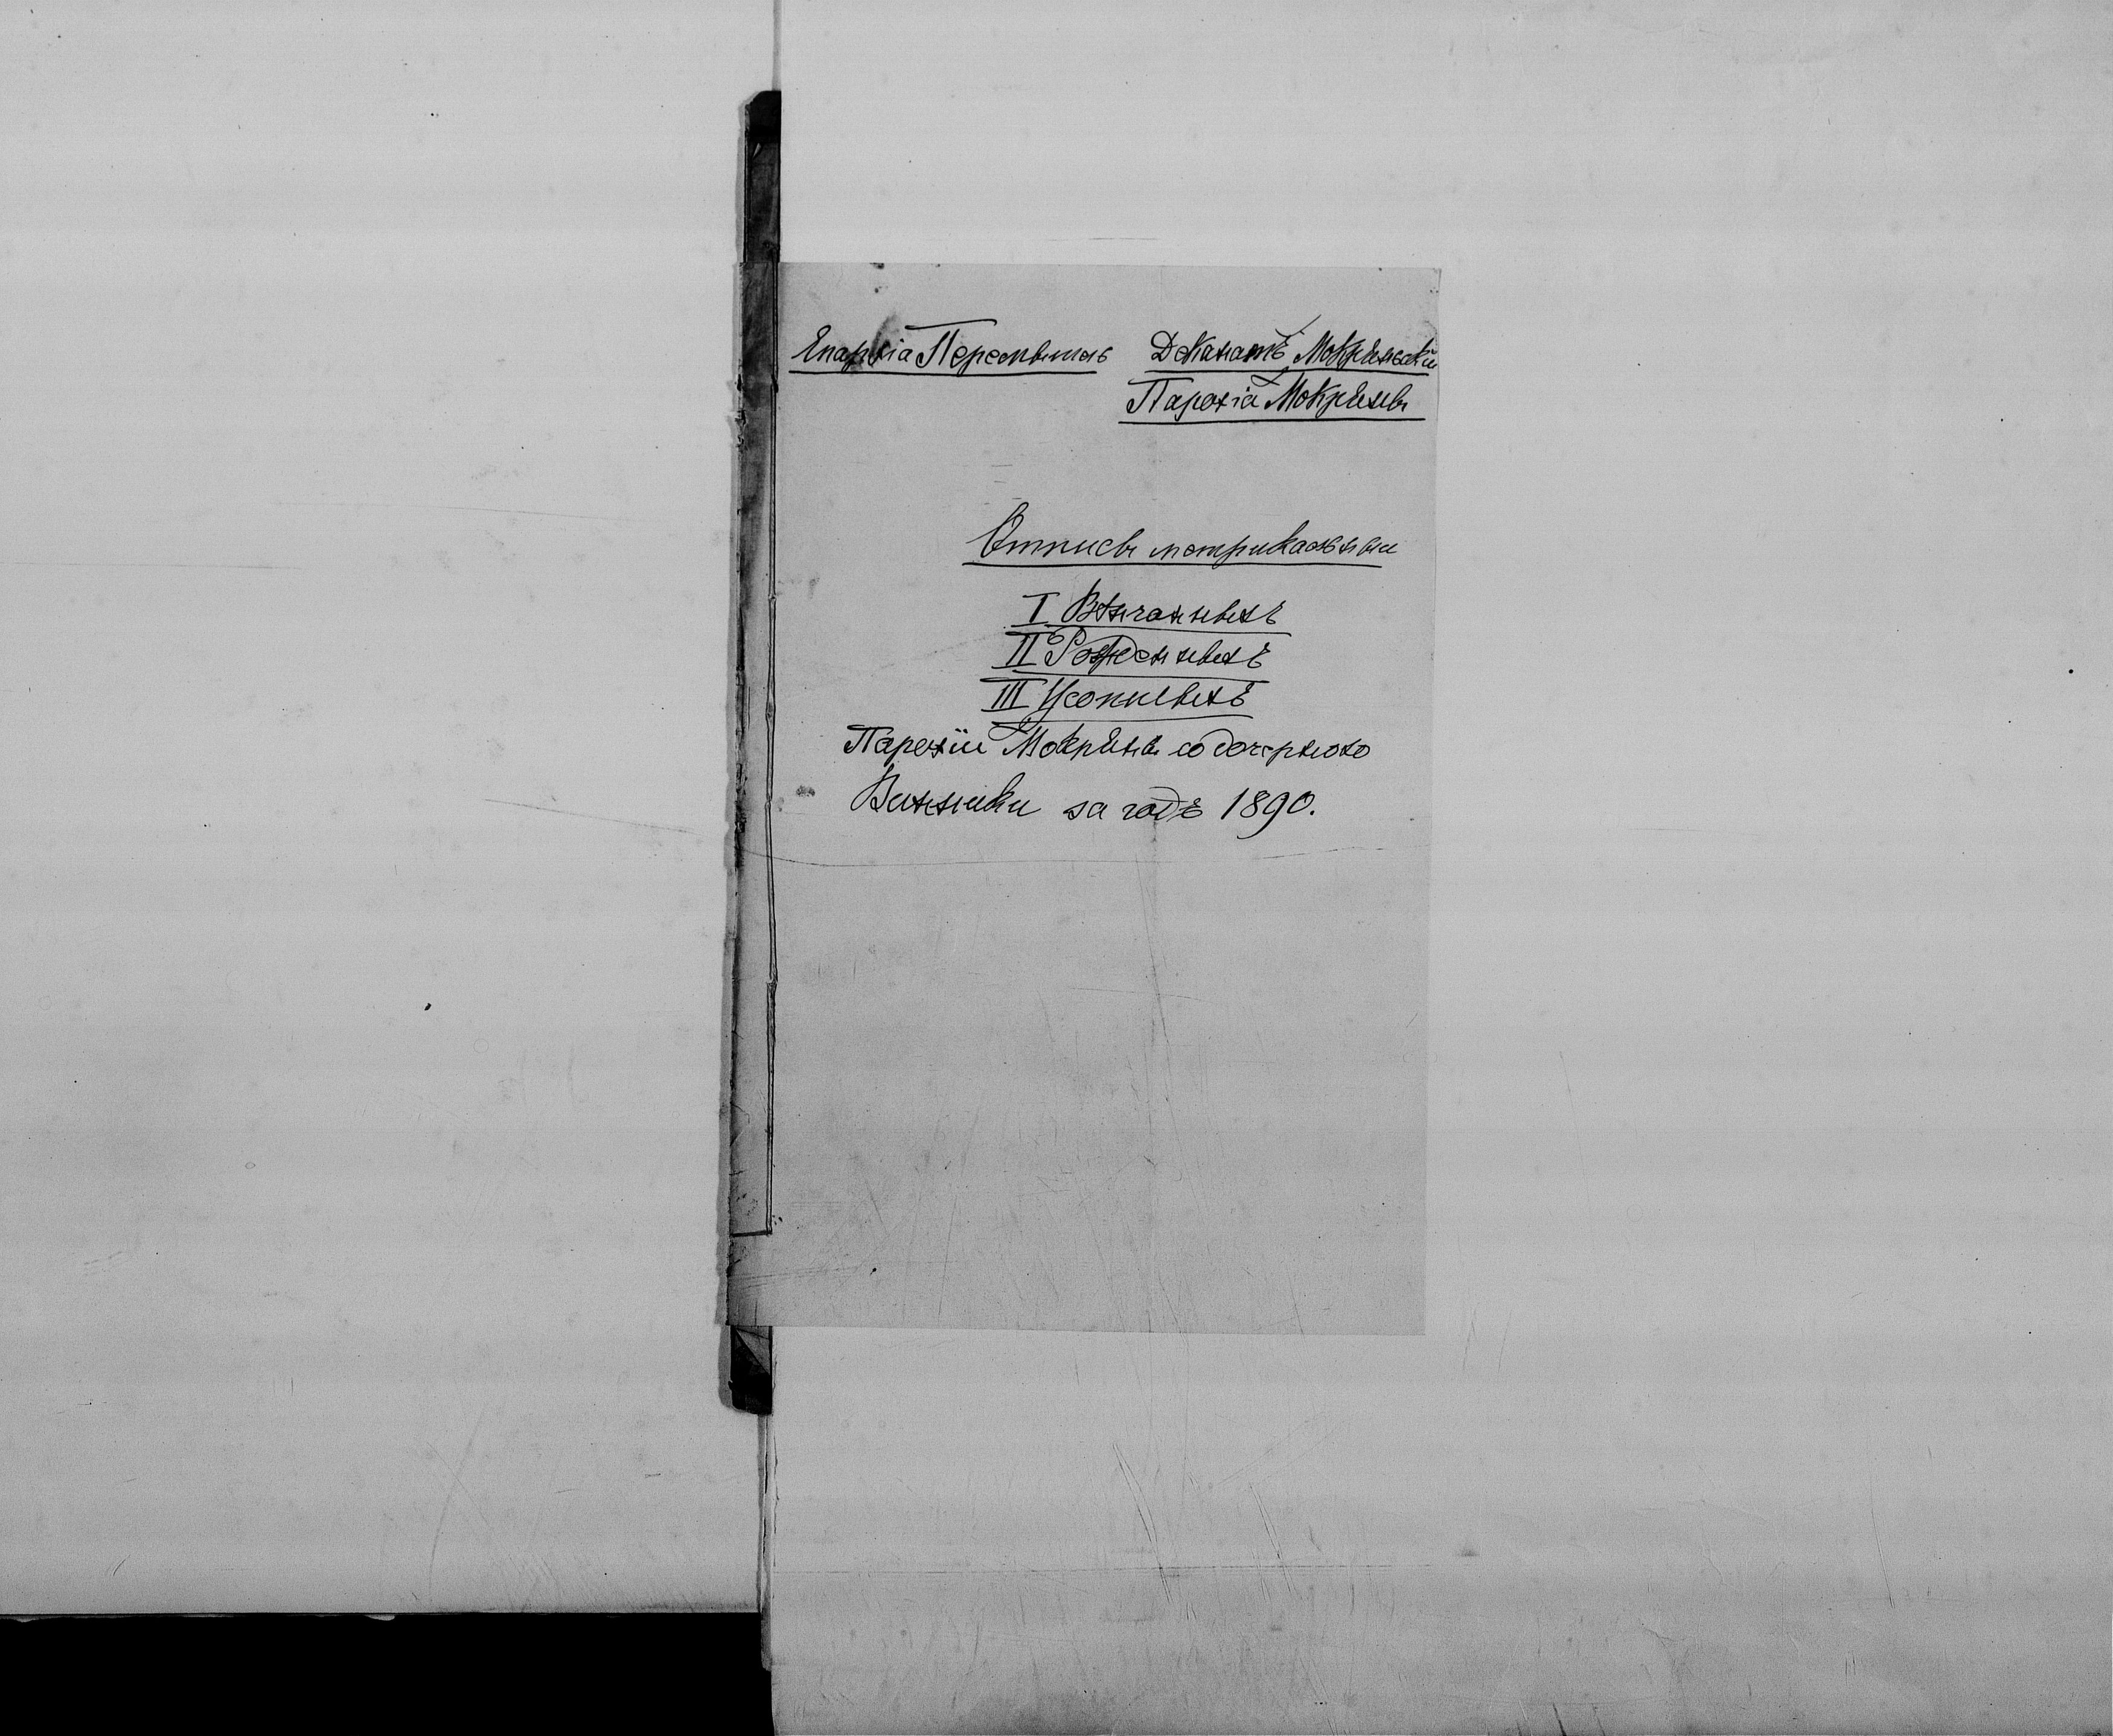 Епархія Перемышль Деканатъ Мокрянскій
Парохія Мокряны
Отписы метрикальныи
I Вѣнчанныхъ
II Рожденныхъ
III Усопшыхъ
Парохіи Мокряны со дочернею
Винники за годъ 1890.